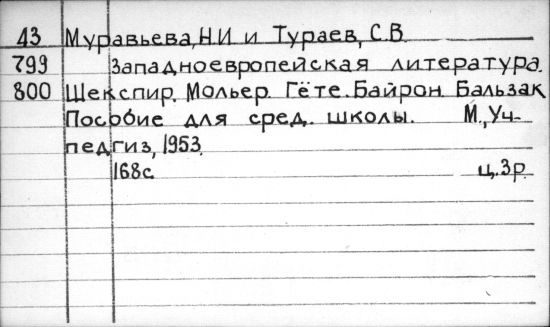 43 Муравьева, Н.И и Тураев, С.В.
799 Западноевропейская литература.
800 Шекспир. Мольер. Гёте. Байрон. Бальзак
Пособие для сред. школы. М., Уч-
педгиз, 1953.
168с. ц. 3р.